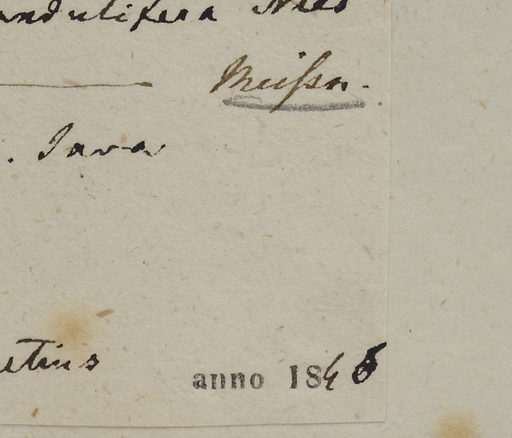 andulifera Nees
Meißn.
. Java
etius
anno 1846